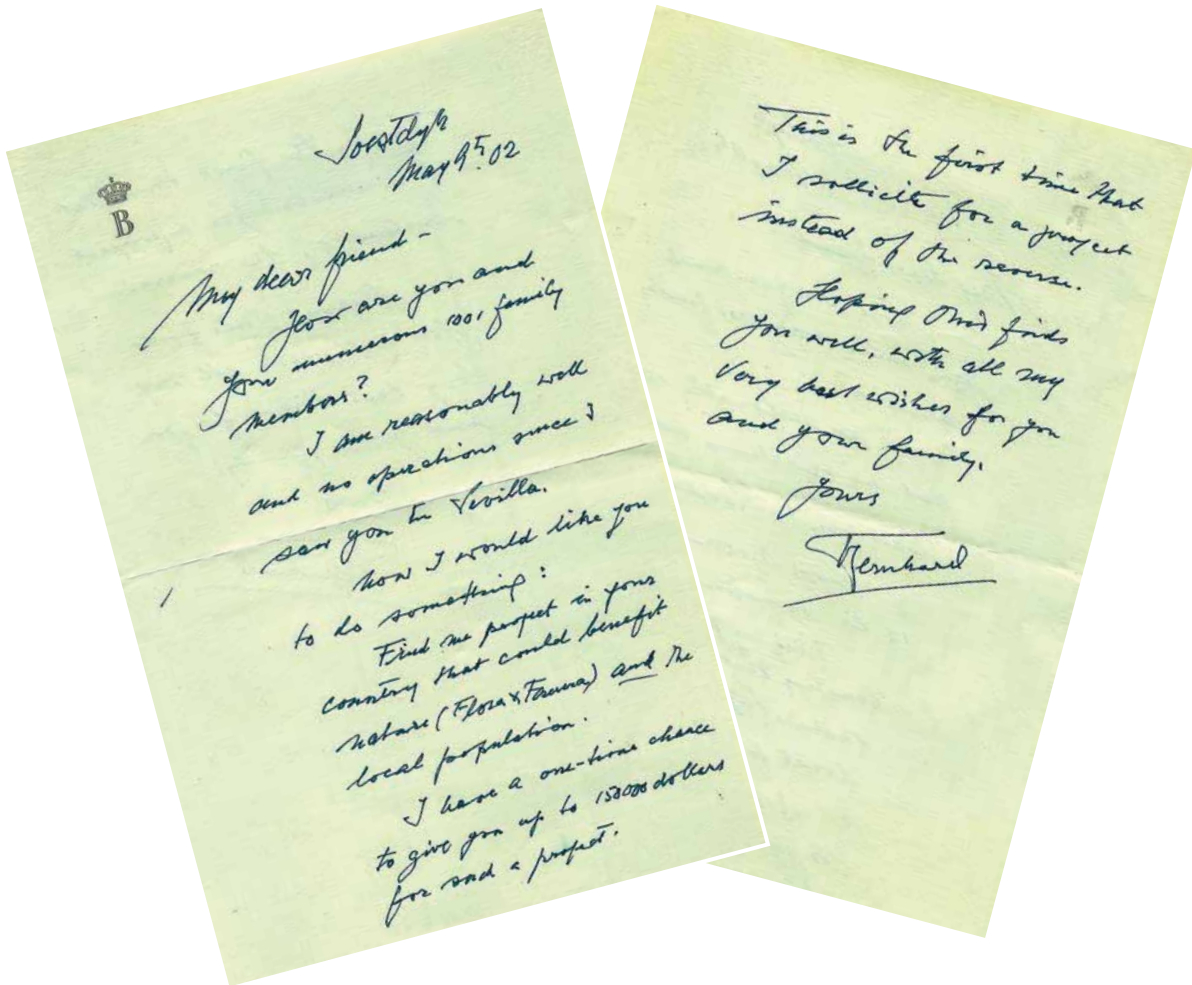 B
Soestdyk
May 9th. 02
My dear friend -
How are you and
your numerous 1001 family
members?
I am reasonably well
and no operations since I
saw you in Sevilla.
Now I would like you
to do something:
Find me project in your
country that could benefit
nature (Flora & Fauna) and the
local population.
I have a one-time chance
to give you up to 150000 dollars
for such a project.
This is the first time that
I sollicite for a project
instead of the reverse.
Hoping this finds
you well, with all my
very best wishes for you
and your family.
Yours
Bernhard